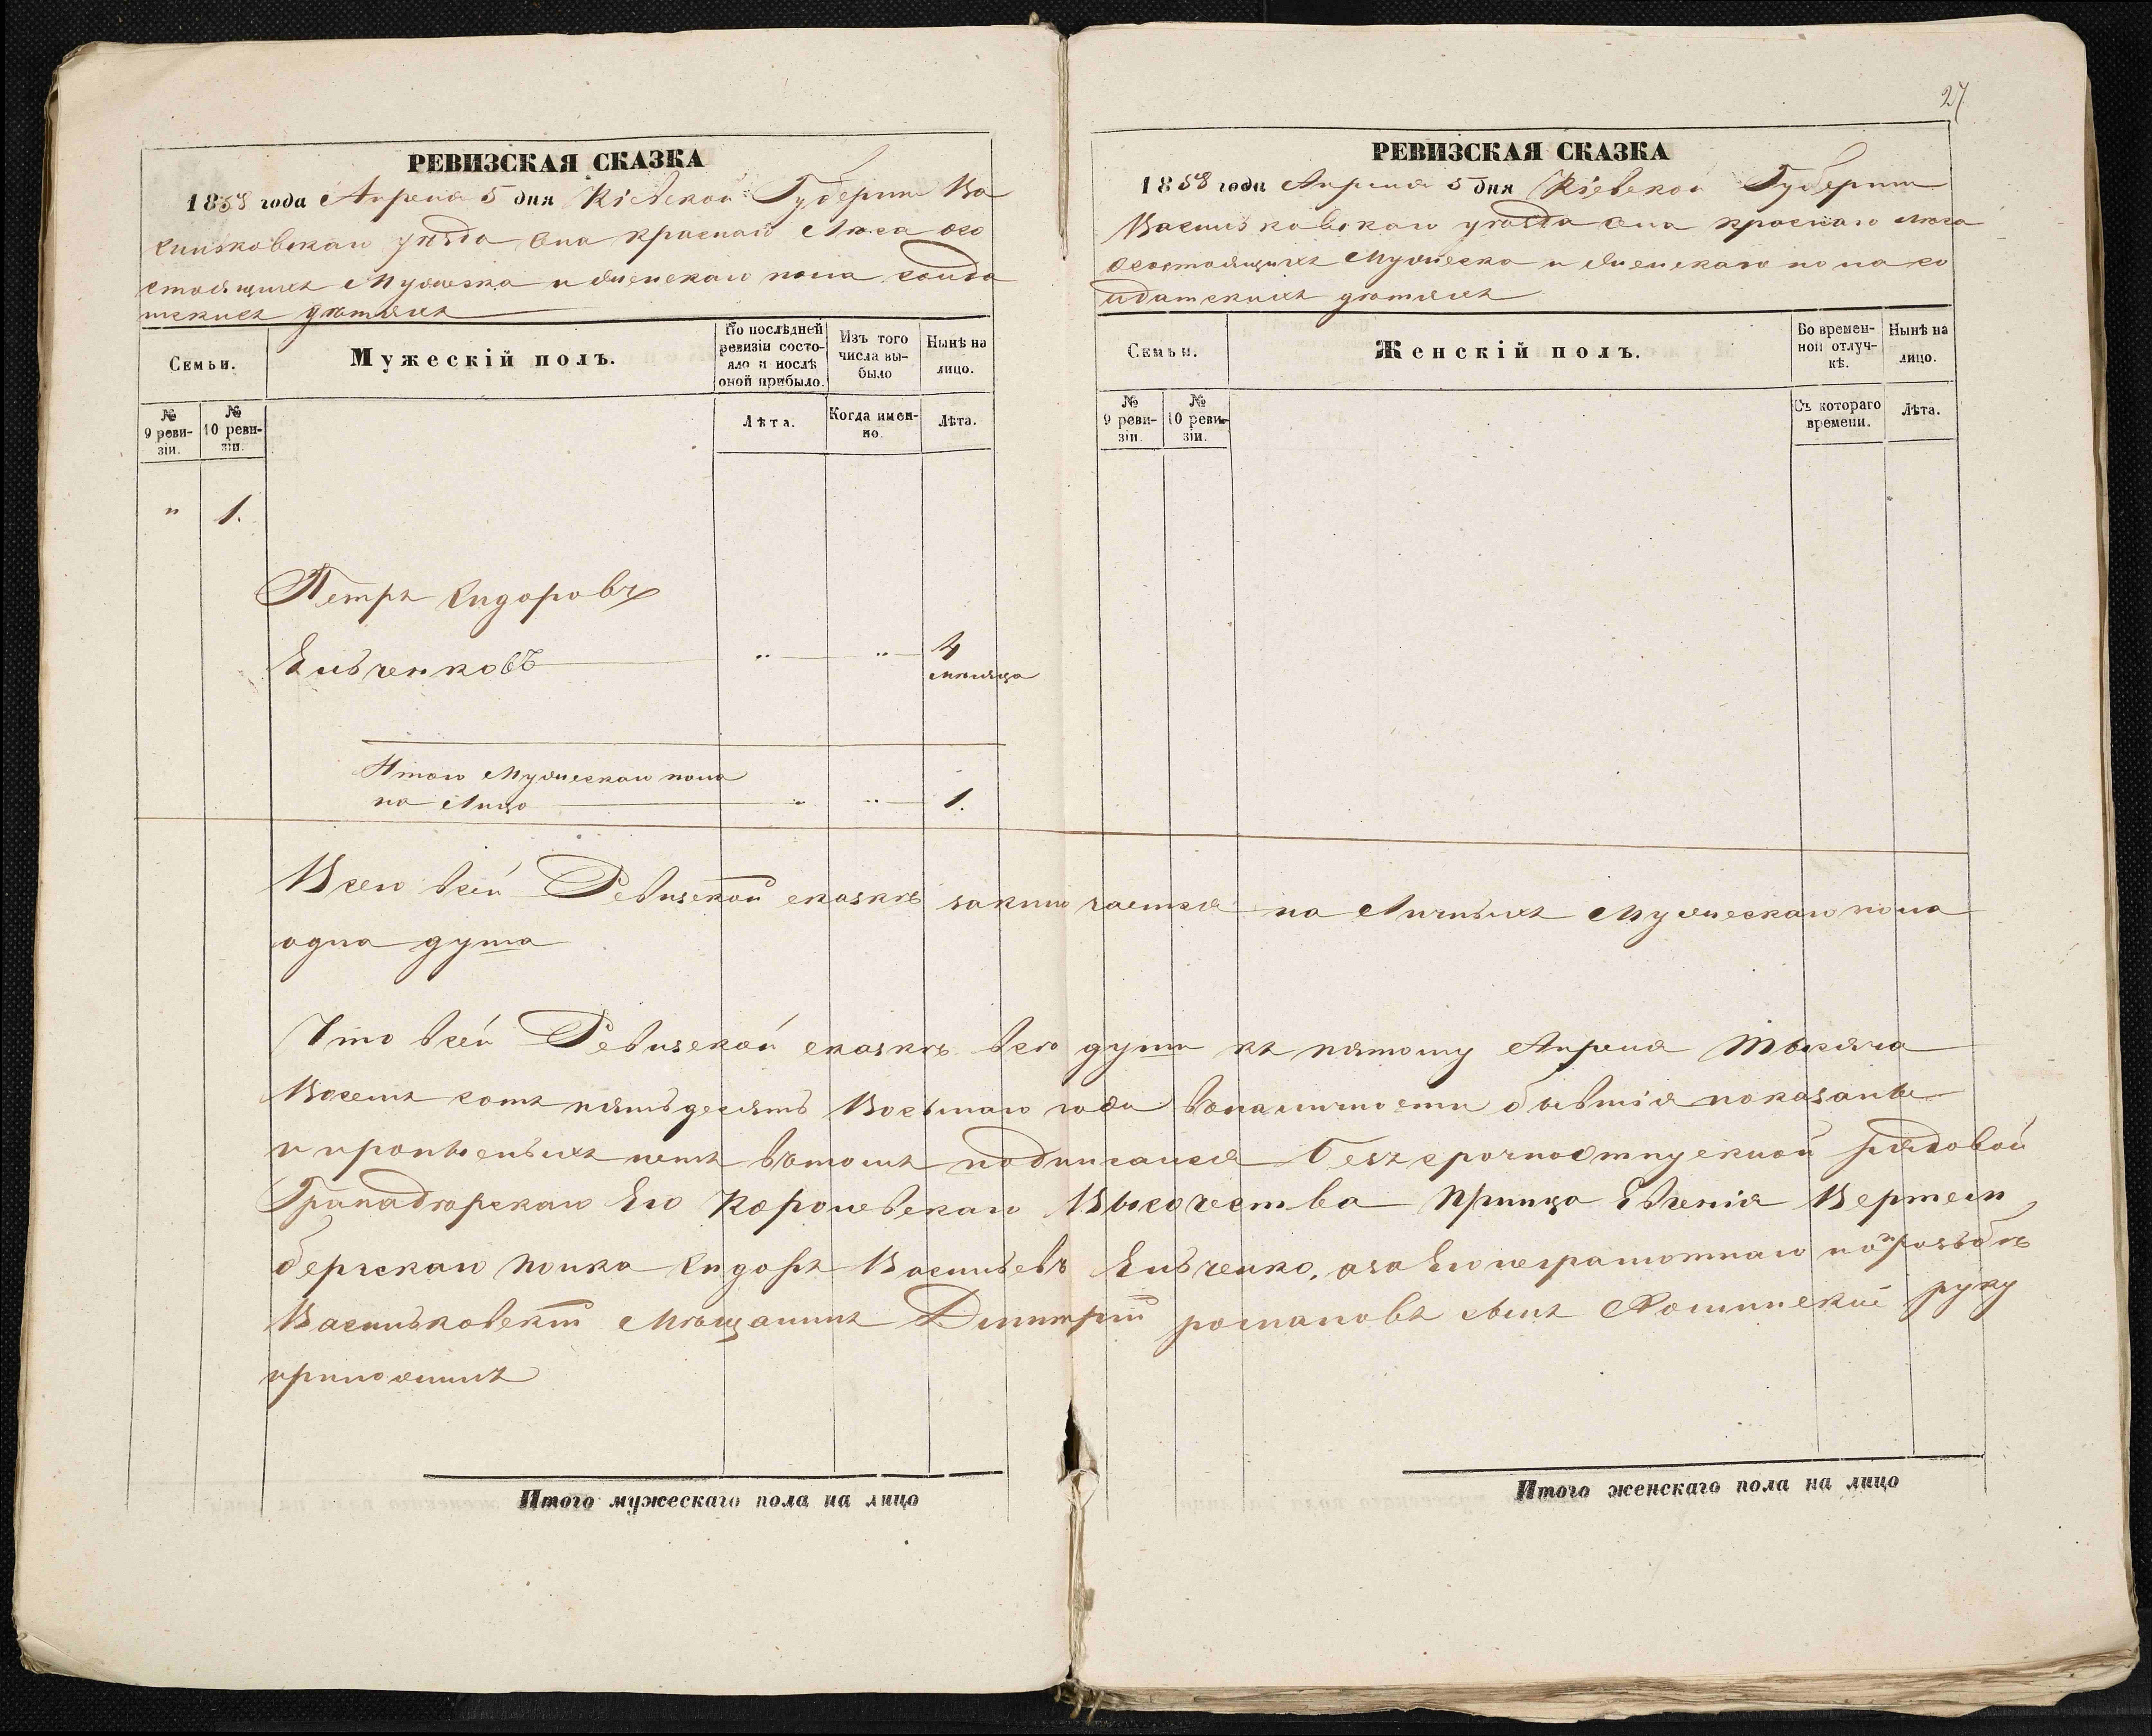 27
РЕВИЗСКАЯ СКАЗКА
1858 года Апреля 5 дня Кіевской Губерніи Ва
сильковскаго уѣзда Села краснаго Лѣса осо
стоящихъ Мужеска и женскаго пола солда
тскихъ дѣтяхъ
Семьи.
Мужескій полъ.
По послѣдней ревизіи состояло и послѣ оной прибыло.
Изъ того числа выбыло
Нынѣ на лицо.
№ 9 ревизіи.
№ 10 ревизіи.
Лѣта.
Когда именно.
Лѣта.
" 1.
Петръ Сидоровъ
Ельченковъ " " 4
мѣсяца
Итого Мужескаго пола
на Лицо " " 1.
РЕВИЗСКАЯ СКАЗКА
1858 года Апреля 5 дня Кіевской Губерніи
Васильковскаго уѣзда Села краснаго Лѣса
Осостоящихъ Мужеска и женскаго пола со
лдатскихъ дѣтяхъ
Семьи.
Женскій полъ.
Во временной отлучкѣ.
Нынѣ на лицо.
№ 9 ревизіи.
№ 10 ревизіи.
Съ котораго времени.
Лѣта.
Всего всей Ревизской сказкѣ заключается на Личныхъ Мужескаго пола
одна душа
Что всей Ревизской сказкѣ всѣ души къ пятому Апреля Тысяча
Восемь сотъ пятьдесятъ Восьмаго года вналичности бывшія показаны
и пропыеныхъ нетъ втомъ подписался безсрочноотпускной рядовой
Гранадѣрскаго Его Королевскаго Высочества Принца Евгенія Вертем
бергскаго Полка Сидоръ Васильевъ Ельченко, аза Его неграмотнаго попрозьбѣ
Васильковскій Мѣщанинъ Дмитрій романовъ сынъ руку
приложилъ
Итого мужескаго пола на лицо
Итого женскаго пола на лицо